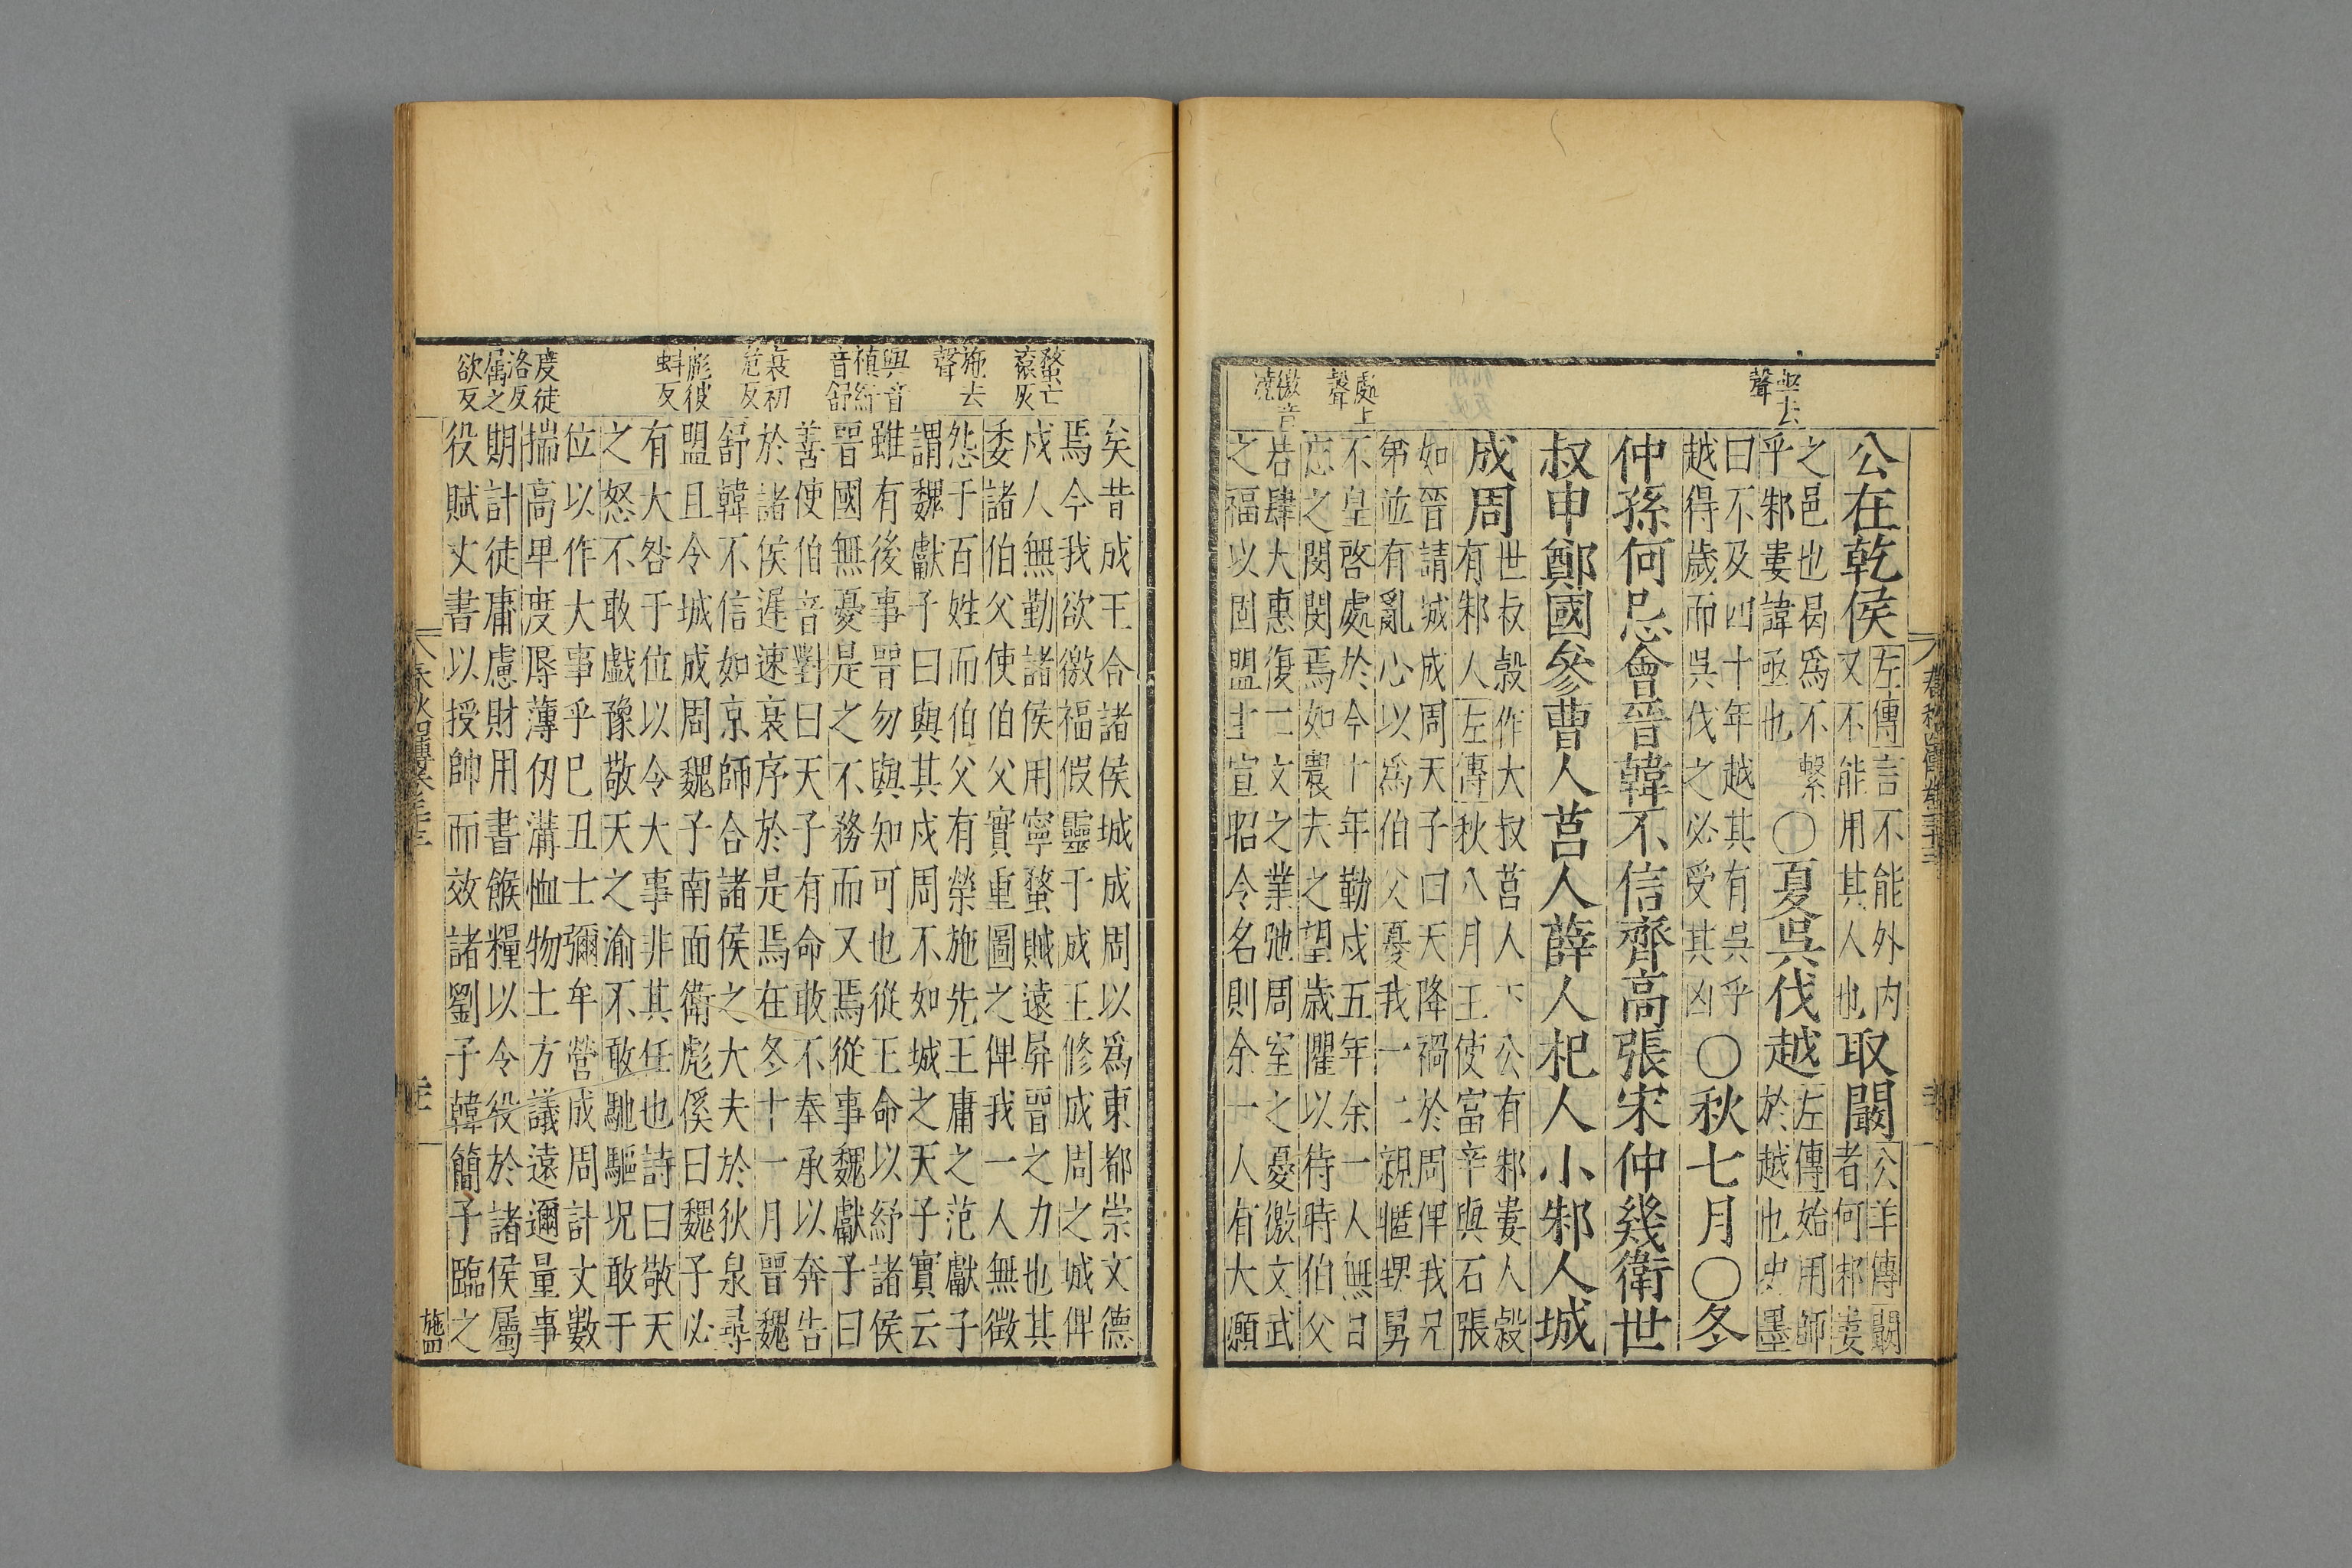 亟去
聲
處上
聲
徼音
澆
公在乾侯左傳言不能外內
又不能用其人也取闞公羊傳闞
者何邾婁
之邑也曷爲不繫
乎邾婁諱亟也○夏吳伐越左傳始用師
於越也史墨
曰不及四十年越其有吳乎
越得歲而吳伐之必受其凶○秋七月○冬
仲孫何忌會晉韓不信齊高張宋仲幾衛世
叔申鄭國參曹人莒人薛人杞人小邾人城
成周世叔穀作大叔莒人下公有邾婁人穀
有邾人左傳秋八月王使富辛與石張
如晉請城成周天子曰天降禍於周俾我兄
弟並有亂心以爲伯父憂我一二親暱甥舅
不皇啓處於今十年勤戍五年余一人無日
忘之閔閔焉如農夫之望歲懼以待時伯父
若肆大惠復二文之業弛周室之憂徼文武
之福以固盟主宣昭令名則余一人有大願
施去
聲
與音
紓
音舒
衰初
危反
彪彼
蚪反
度徒
洛反
屬之
欲反
矣昔成王合諸侯城成周以爲東都崇文德
焉今我欲徼福假靈于成王修成周之城俾
戍人無勤諸侯用寧蝥賊遠屏晉之力也其
委諸伯父使伯父實重圖之俾我一人無徵
怨于百姓而伯父有榮施先王庸之范獻子
謂魏獻子曰與其戍周不如城之天子實云
雖有後事晉勿與知可也從王命以紓諸侯
晉國無憂是之不務而又焉從事魏獻子曰
善使伯音對曰天子有命敢不奉承以奔告
於諸侯遲速衰序於是焉在冬十一月晉魏
舒韓不信如京師合諸侯之大夫於狄泉尋
盟且令城成周魏子南面衛彪傒曰魏子必
有大咎于位以令大事非其任也詩曰敬天
之怒不敢戲豫敬天之渝不敢馳驅況敢于
位以作大事乎巳丑士彌牟營成周計丈數
揣高卑度厚薄仞溝恤物土方議遠邇量事
期計徒庸慮財用書餱糧以令役於諸侯屬
役賦丈書以授帥而效諸劉子韓簡子臨之